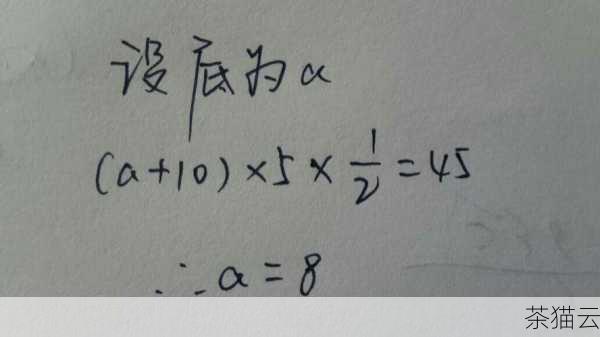 设底为a
(a+10)×5×1/2=45
∴a=8
茶猫云